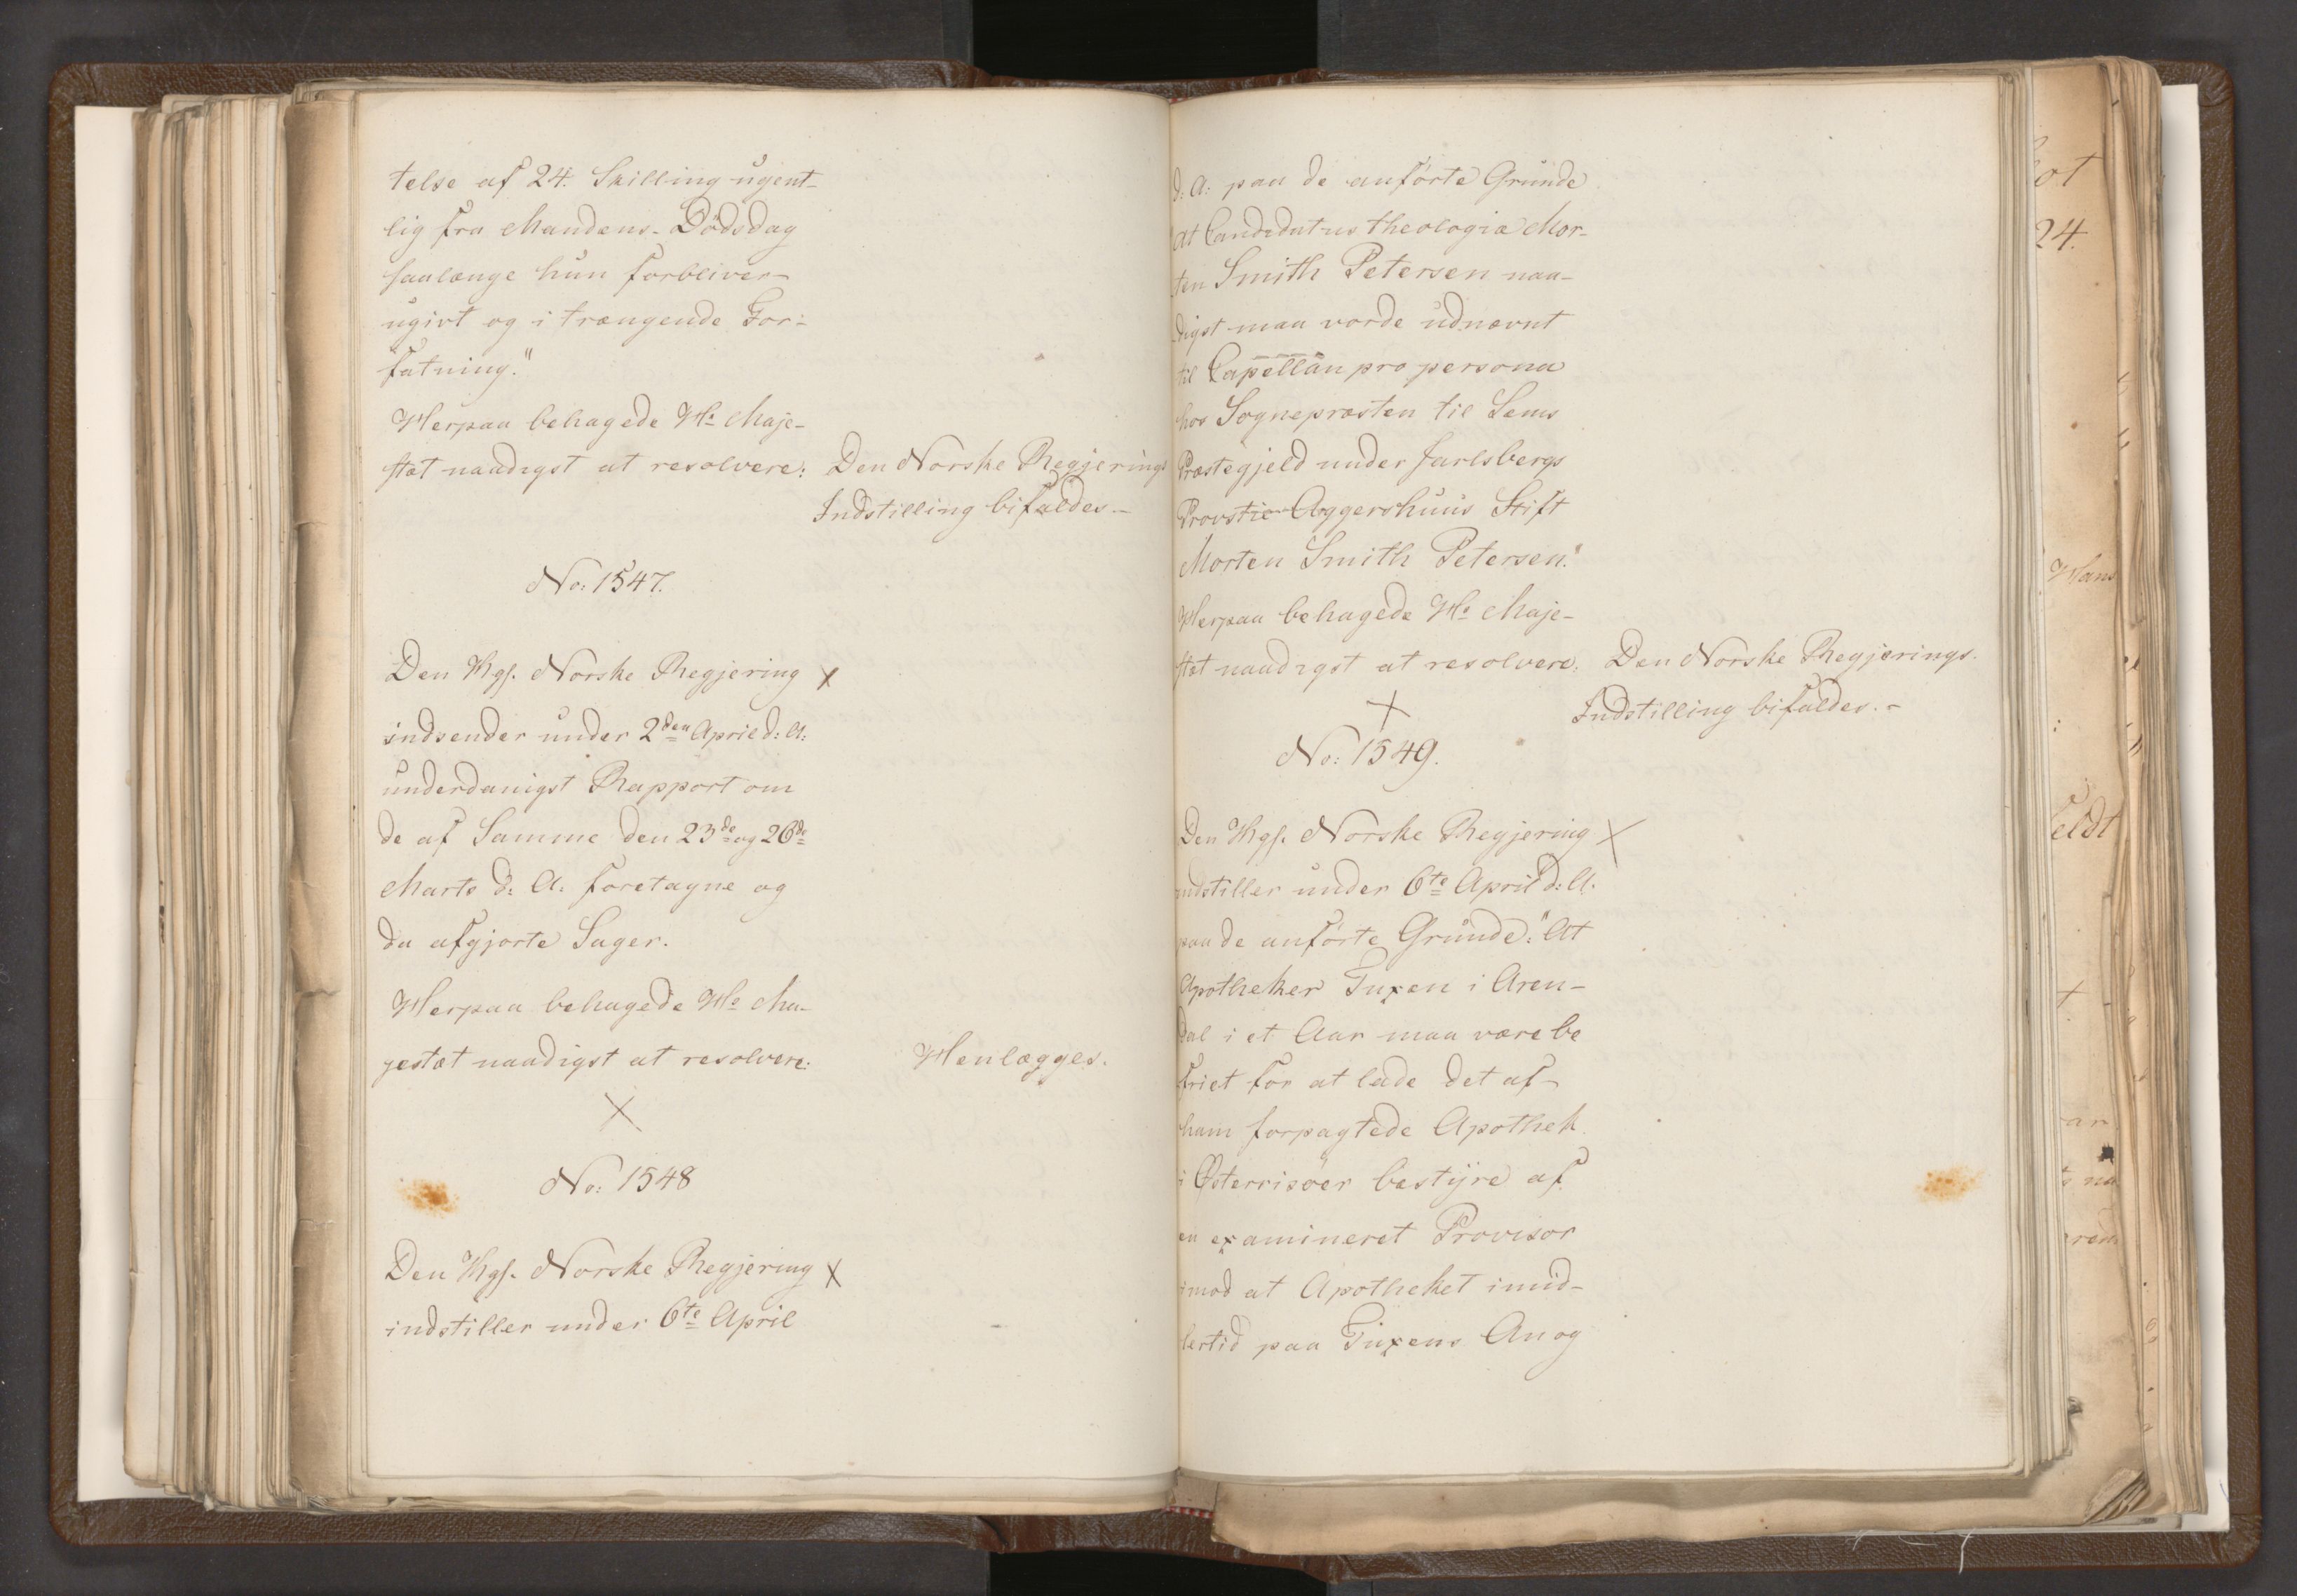 telse af 24. Skilling ugent-
lig fra Mandens Dödsdag
saalænge hun forbliver
ugivt og i trængende For-
fatning."
Herpaa behagede Hs Maje-
stæt naadigst at resolvere:
Den Norske Regjerings
Indstilling bifaldes.-
No: 1547.
Den Kgs. Norske Regjering X
indsender under 2den April d: A:
underdanigst Rapport om
de af Samme den 23de og 26de
Marts d: A: foretagne og
da afgjorte Sager.
Herpaa behagede Hs Ma-
jestæt naadigst at resolvere:
Henlægges.
X
No: 1548
Den Kgs. Norske Regjering X
indstiller under 6te April
d: A: paa de anförte Grunde
"At Candidatus theologiæ Mor-
ten Smith Petersen naa-
digst maa vorde udnævnt
til Capellan pro persona
hos Sognepræsten til Sems
Præstegjeld under Jarlsbergs
Provstie Aggershuus Stift
Morten Smith Petersen."
Herpaa behagede Hs Maje-
stæt naadigst at resolvere:
Den Norske Regjerings
Indstilling bifaldes.-
X
No: 1549.
Den Kgs. Norske Regjering X
indstiller under 6te April d: A.
paa de anförte Grunde: "At
Apotheker Tuxen i Aren-
dal i et Aar maa være be
friet for at lade det af
ham forpagtede Apothek
i Østerrisöer bestyre af
en examineret Provisor
imod at Apotheket imid-
lertid paa Tuxens An og
24.